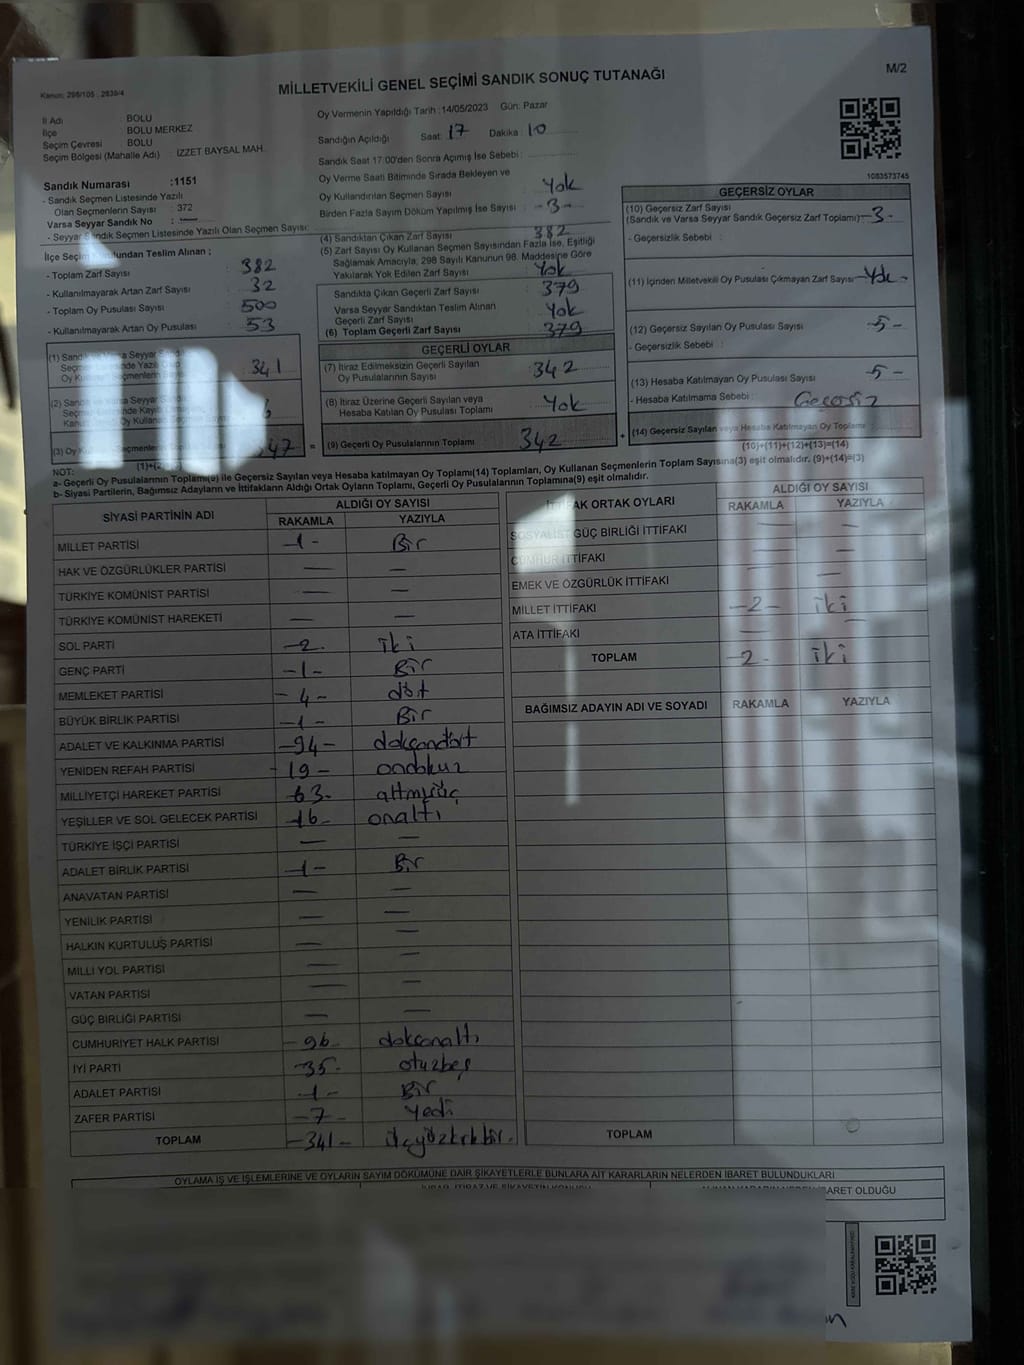 Kanun: 298/105 , 2839/4
MİLLETVEKİLİ GENEL SEÇİMİ SANDIK SONUÇ TUTANAĞI
M/2
İl Adı BOLU
İlçe BOLU MERKEZ
Seçim Çevresi BOLU
Seçim Bölgesi (Mahalle Adı) : İZZET BAYSAL MAH.
Sandık Numarası :1151
- Sandık Seçmen Listesinde Yazılı
Olan Seçmenlerin Sayısı : 372
Varsa Seyyar Sandık No : —
- Seyyar Sandık Seçmen Listesinde Yazılı Olan Seçmen Sayısı:
Oy Vermenin Yapıldığı Tarih :14/05/2023 Gün: Pazar
Sandığın Açıldığı Saat: 17 Dakika: 10
Sandık Saat 17:00'den Sonra Açımış İse Sebebi :
Oy Verme Saati Bitiminde Sırada Bekleyen ve
Oy Kullandırılan Seçmen Sayısı : Yok
Birden Fazla Sayım Döküm Yapılmış İse Sayısı : -3-
1083573745
İlçe Seçim Kurulundan Teslim Alınan ;
- Toplam Zarf Sayısı : 382
- Kullanılmayarak Artan Zarf Sayısı : 32
- Toplam Oy Pusulası Sayısı : 500
- Kullanılmayarak Artan Oy Pusulası : 53
(4) Sandıktan Çıkan Zarf Sayısı : 382
(5) Zarf Sayısı Oy Kullanan Seçmen Sayısından Fazla İse, Eşitliği
Sağlamak Amacıyla, 298 Sayılı Kanunun 98. Maddesine Göre
Yakılarak Yok Edilen Zarf Sayısı : Yok
Sandıkta Çıkan Geçerli Zarf Sayısı : 379
Varsa Seyyar Sandıktan Teslim Alınan
Geçerli Zarf Sayısı : Yok
(6) Toplam Geçerli Zarf Sayısı : 379
GEÇERLİ OYLAR
(7) İtiraz Edilmeksizin Geçerli Sayılan
Oy Pusulalarının Sayısı : 342
(8) İtiraz Üzerine Geçerli Sayılan veya
Hesaba Katılan Oy Pusulası Toplamı : Yok
(9) Geçerli Oy Pusulalarının Toplamı : 342
GEÇERSİZ OYLAR
(10) Geçersiz Zarf Sayısı
(Sandık ve Varsa Seyyar Sandık Geçersiz Zarf Toplamı) -3-
- Geçersizlik Sebebi :
(11) İçinden Milletvekili Oy Pusulası Çıkmayan Zarf Sayısı -Yok-
(12) Geçersiz Sayılan Oy Pusulası Sayısı -5-
- Geçersizlik Sebebi :
(13) Hesaba Katılmayan Oy Pusulası Sayısı -5-
- Hesaba Katılmama Sebebi : Geçersiz
(14) Geçersiz Sayılan veya Hesaba Katılmayan Oy Toplamı :
(10)+(11)+(12)+(13)=(14)
341
47
NOT:
a- Geçerli Oy Pusulalarının Toplamı(9) ile Geçersiz Sayılan veya Hesaba katılmayan Oy Toplamı(14) Toplamları, Oy Kullanan Seçmenlerin Toplam Sayısına(3) eşit olmalıdır. (9)+(14)=(3)
b- Siyasi Partilerin, Bağımsız Adayların ve İttifakların Aldığı Ortak Oyların Toplamı, Geçerli Oy Pusulalarının Toplamına(9) eşit olmalıdır.
SİYASİ PARTİNİN ADI ALDIĞI OY SAYISI
RAKAMLA YAZIYLA
MİLLET PARTİSİ -1- Bir
HAK VE ÖZGÜRLÜKLER PARTİSİ — —
TÜRKİYE KOMÜNİST PARTİSİ — —
TÜRKİYE KOMÜNİST HAREKETİ — —
SOL PARTİ -2- iki
GENÇ PARTİ -1- Bir
MEMLEKET PARTİSİ -4- dört
BÜYÜK BİRLİK PARTİSİ -1- Bir
ADALET VE KALKINMA PARTİSİ -94- doksandört
YENİDEN REFAH PARTİSİ -19- ondokuz
MİLLİYETÇİ HAREKET PARTİSİ -63- altmışüç
YEŞİLLER VE SOL GELECEK PARTİSİ -16- onaltı
TÜRKİYE İŞÇİ PARTİSİ — —
ADALET BİRLİK PARTİSİ -1- Bir
ANAVATAN PARTİSİ — —
YENİLİK PARTİSİ — —
HALKIN KURTULUŞ PARTİSİ — —
MİLLİ YOL PARTİSİ — —
VATAN PARTİSİ — —
GÜÇ BİRLİĞİ PARTİSİ — —
CUMHURİYET HALK PARTİSİ -96- doksanaltı
İYİ PARTİ -35- otuzbeş
ADALET PARTİSİ -1- Bir
ZAFER PARTİSİ -7- Yedi
TOPLAM -341- üçyüzkırkbir.
İTTİFAK ORTAK OYLARI ALDIĞI OY SAYISI
RAKAMLA YAZIYLA
SOSYALİST GÜÇ BİRLİĞİ İTTİFAKI — —
CUMHUR İTTİFAKI — —
EMEK VE ÖZGÜRLÜK İTTİFAKI — —
MİLLET İTTİFAKI -2- iki
ATA İTTİFAKI — —
TOPLAM -2- iki
BAĞIMSIZ ADAYIN ADI VE SOYADI RAKAMLA YAZIYLA
TOPLAM
OYLAMA İŞ VE İŞLEMLERİNE VE OYLARIN SAYIM DÖKÜMÜNE DAİR ŞİKAYETLERLE BUNLARA AİT KARARLARIN NELERDEN İBARET BULUNDUKLARI
İBARET OLDUĞU